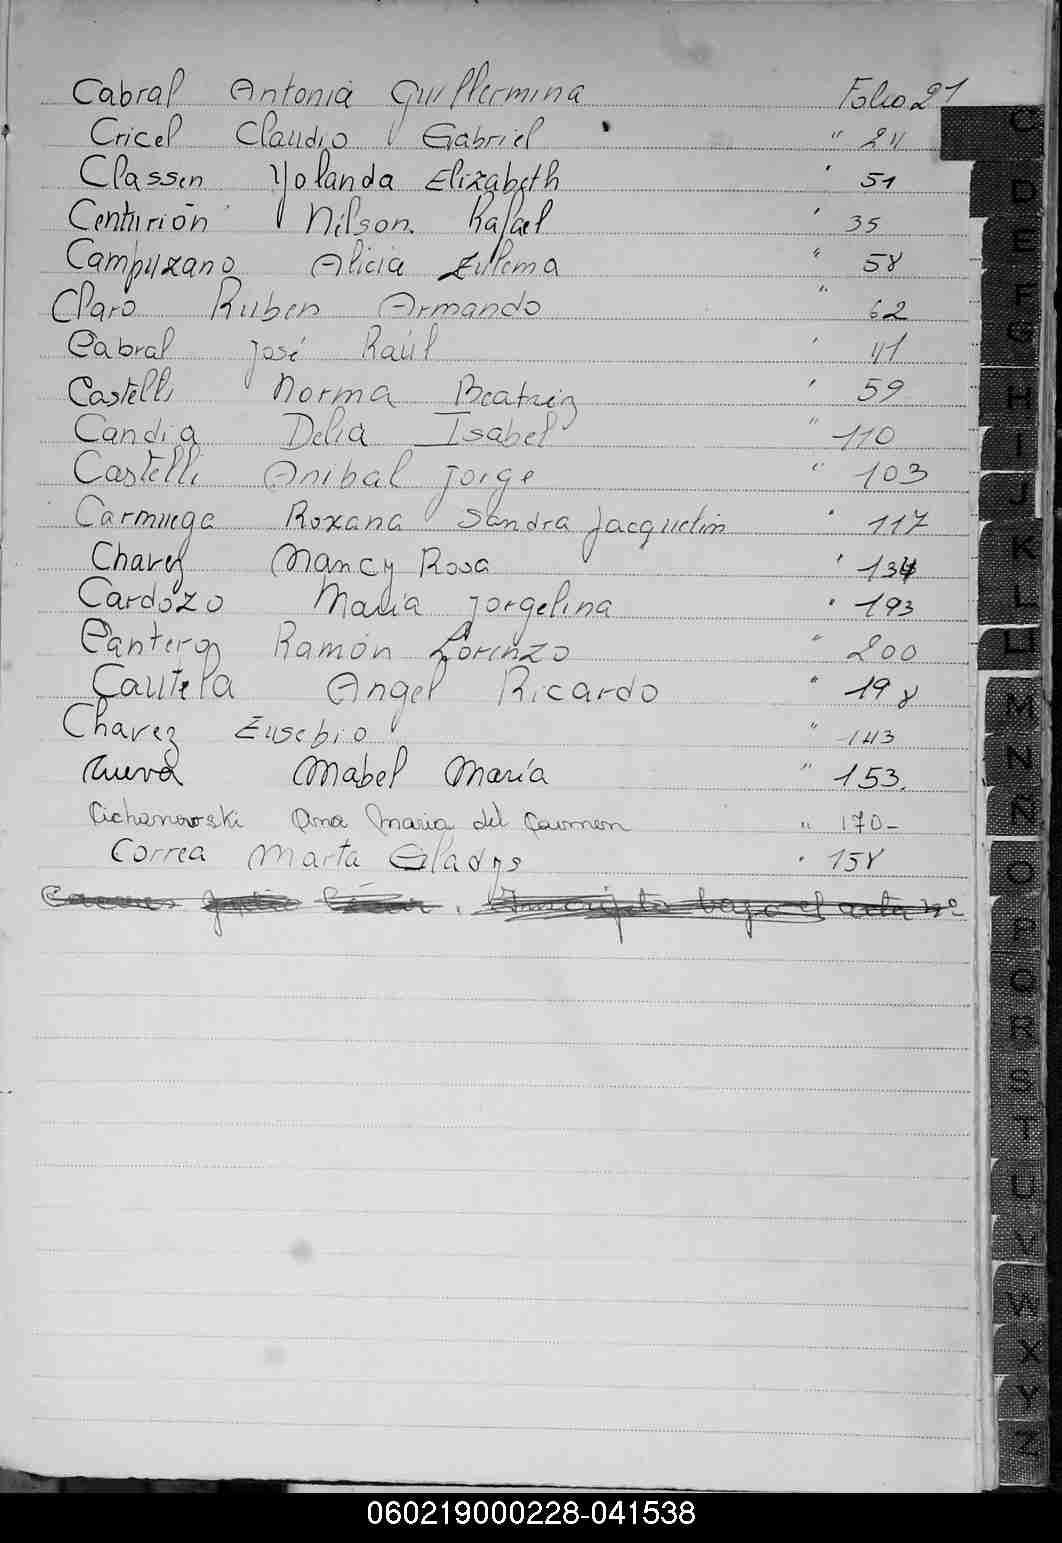 Cabral Antonia Guillermina Folio 21
Cricel Claudio Gabriel " 24
Classen Yolanda Elizabeth " 51
Centurión Nilson Rafael " 35
Campuzano Alicia Zulema " 58
Claro Ruben Armando " 62
Cabral José Raúl " 41
Castelli Norma Beatriz " 59
Candia Delia Isabel " 110
Castelli Anibal Jorge " 103
Carmuega Roxana Sandra Jacquelin " 117
Chavez Nancy Rosa " 134
Cardozo María Jorgelina " 193
Cantero Ramón Lorenzo " 200
Cautela Angel Ricardo " 198
Chavez Eusebio " 143
Mabel María " 153.
Cichanowski Ana Maria del Carmen " 170-
Correa Marta Gladys " 158
bajo el acta nº
C
D
E
F
G
H
I
J
K
L
LL
M
N
Ñ
O
P
Q
R
S
T
U
V
W
X
Y
Z
060219000228-041538